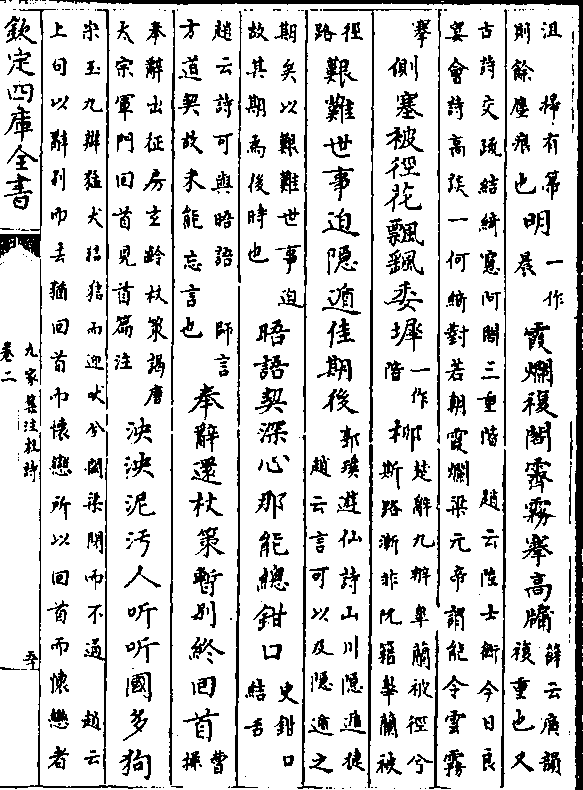 沮 掃有第
則餘塵痕也
明
一作
晨
霞爛複閣霽霧搴高牖
薛云廣韻
複重也又
古詩交疏結綺窻阿閣三重階 趙云陸士衡今日良
宴會詩高談一何綺對若朝霞爛梁元帝謂能令雲霧
搴
側塞被徑花飄颻委墀
一作
階
柳
楚辭九辯皋蘭被徑兮
斯路漸非阮籍皋蘭被
徑
路
艱難世事迫隱遁佳期後
郭璞遊仙詩山川隱遁棲
趙云言可以及隱遁之
期矣以艱難世事迫
故其期為後時也
晤語契深心那能總鉗口
史鉗口
結舌
趙云詩可與晤語 師言
方道契故未能忘言也
奉辭還杖策暫别終回首
曹
操
奉辭出征房玄齡杖策謁唐
太宗軍門回首見首篇注
泱泱泥汙人听听國多狗
宋玉九辯猛犬狺狺而迎吠兮關梁閉而不通 趙云
上句以辭别而去猶回首而懷戀所以回首而懷戀者
欽定四庫全書
九家集注杜詩
卷二